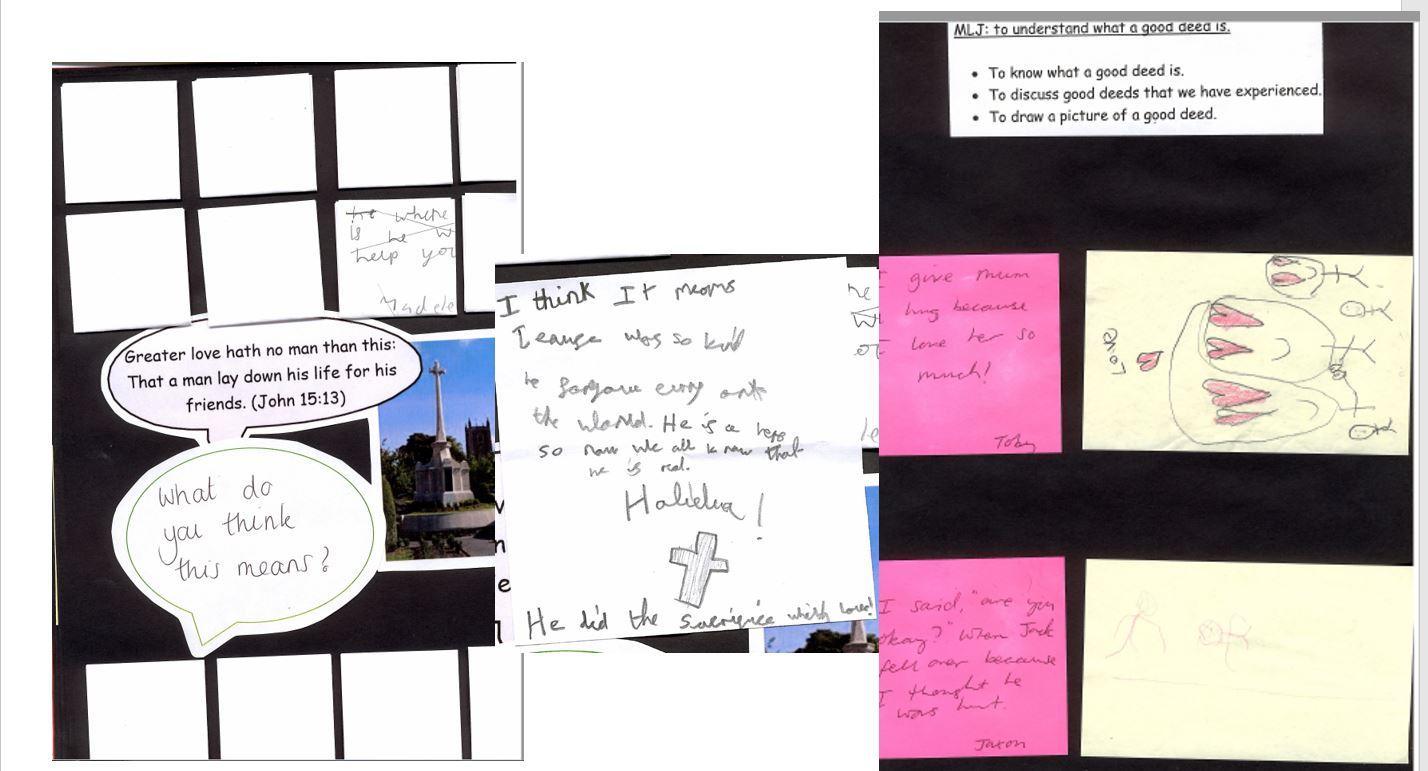 the where
is he w
help you
Madele
Greater love hath no man than this:
That a man lay down his life for his
friends. (John 15:13)
What do
you think
this means?
I think It means
was so kid
he forgave evry
the world. He is a hero
so now we all know that
he is real.
Haleluia!
He did the sacrifice which loved!
he
MLJ: to understand what a good deed is.
• To know what a good deed is.
• To discuss good deeds that we have experienced.
• To draw a picture of a good deed.
I give mum
hug because
I love her so
much!
Toby
Love
I said, "are you
okay?" when Jack
fell over because
I thought he
was hurt.
Jaxon